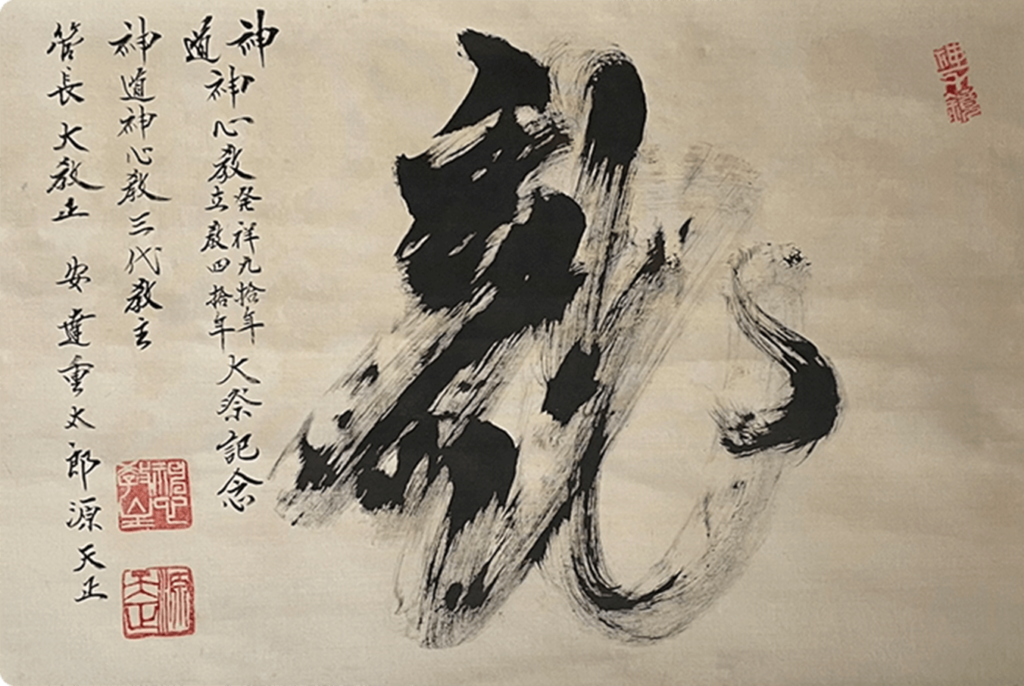 神道神心教
発祥九拾年
立教四拾年
大祭記念
神道神心教三代教主
管長大教正 安達重太郎源天正
源天正